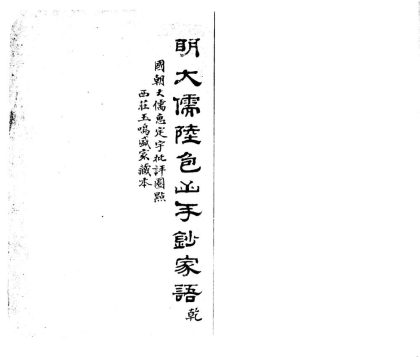 明大儒陸包山手鈔家語
乾
國朝大儒惠定宇批評圈點
西莊王鳴盛家藏本